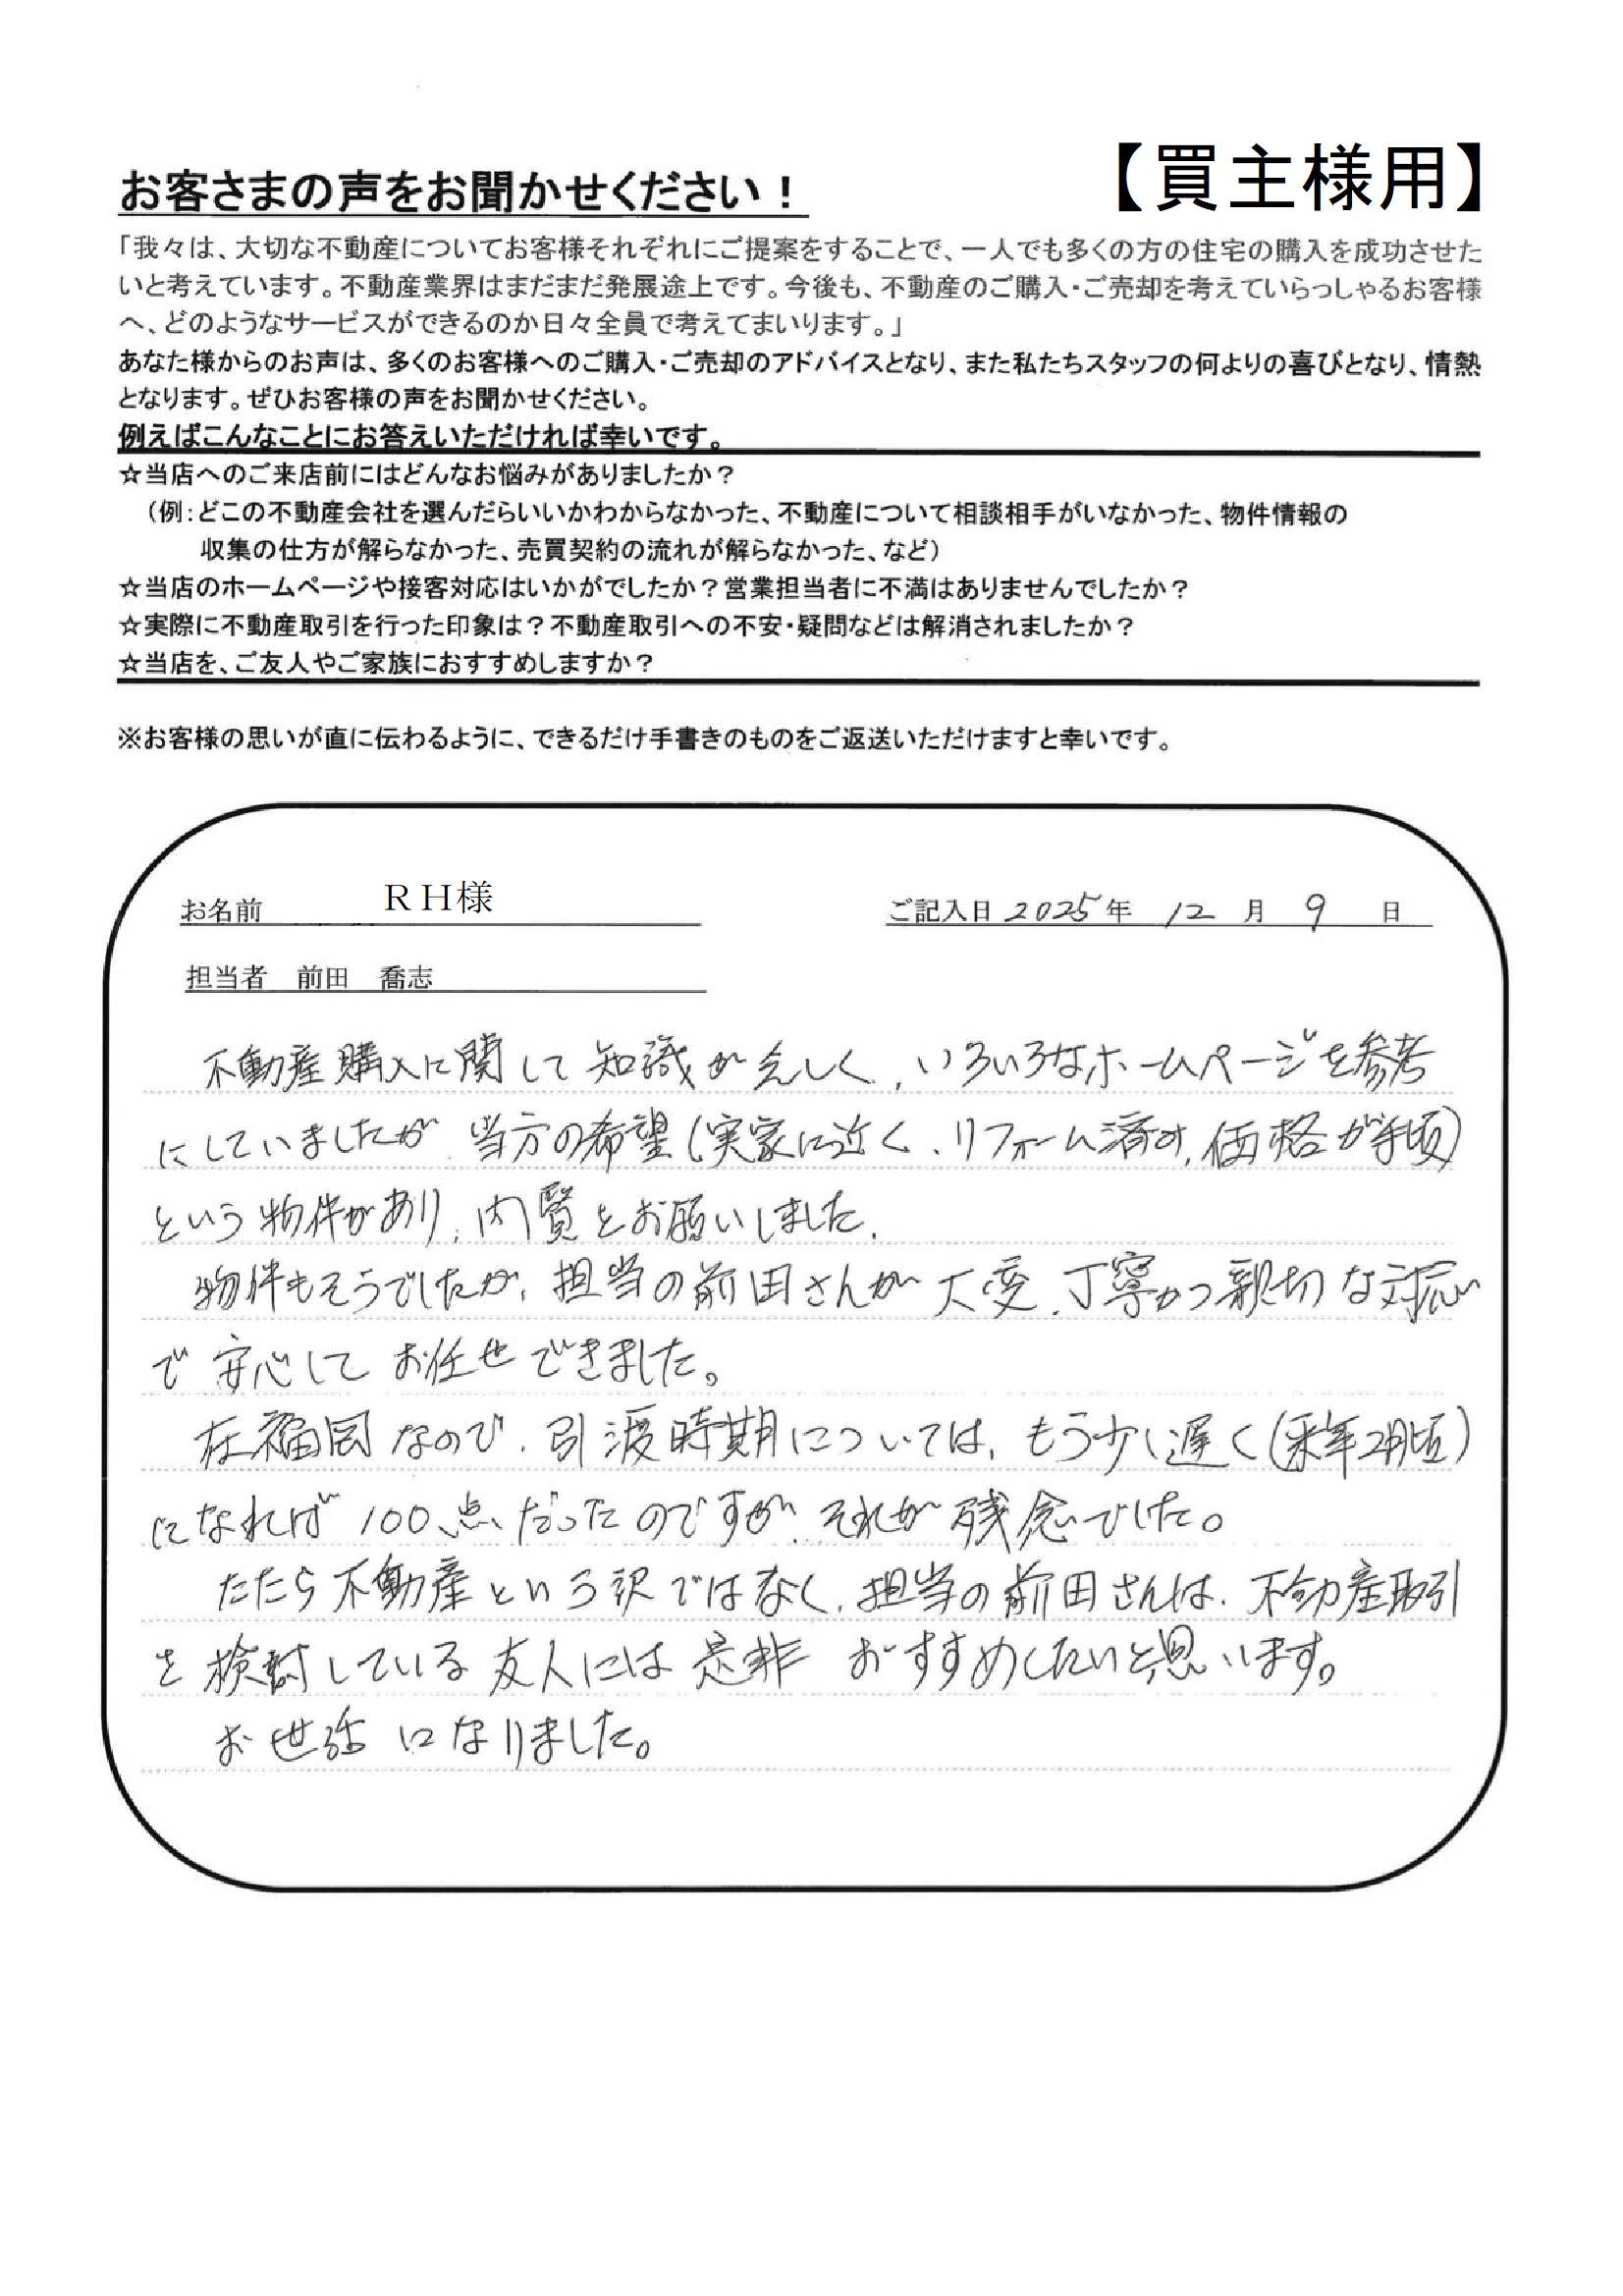 【買主様用】
お客さまの声をお聞かせください！
「我々は、大切な不動産についてお客様それぞれにご提案をすることで、一人でも多くの方の住宅の購入を成功させた
いと考えています。不動産業界はまだまだ発展途上です。今後も、不動産のご購入・ご売却を考えていらっしゃるお客様
へ、どのようなサービスができるのか日々全員で考えてまいります。」
あなた様からのお声は、多くのお客様へのご購入・ご売却のアドバイスとなり、また私たちスタッフの何よりの喜びとなり、情熱
となります。ぜひお客様の声をお聞かせください。
例えばこんなことにお答えいただければ幸いです。
☆当店へのご来店前にはどんなお悩みがありましたか？
（例：どこの不動産会社を選んだらいいかわからなかった、不動産について相談相手がいなかった、物件情報の
収集の仕方が解らなかった、売買契約の流れが解らなかった、など）
☆当店のホームページや接客対応はいかがでしたか？営業担当者に不満はありませんでしたか？
☆実際に不動産取引を行った印象は？不動産取引への不安・疑問などは解消されましたか？
☆当店を、ご友人やご家族におすすめしますか？
※お客様の思いが直に伝わるように、できるだけ手書きのものをご返送いただけますと幸いです。
お名前 ＲＨ様 ご記入日 2025年 12月 9日
担当者 前田 喬志
不動産購入に関して知識が乏しく、いろいろなホームページを参考
にしていましたが、当方の希望（実家に近く、リフォーム済み、価格が手頃）
という物件があり、内覧をお願いしました。
物件もそうでしたが、担当の前田さんが大変、丁寧かつ親切な対応
で安心してお任せできました。
在福岡なので、引渡時期については、もう少し遅く（来年2月頃）
になれば100点だったのですが、それが残念でした。
ただ不動産という訳ではなく、担当の前田さんは、不動産取引
を検討している友人には是非おすすめしたいと思います。
お世話になりました。